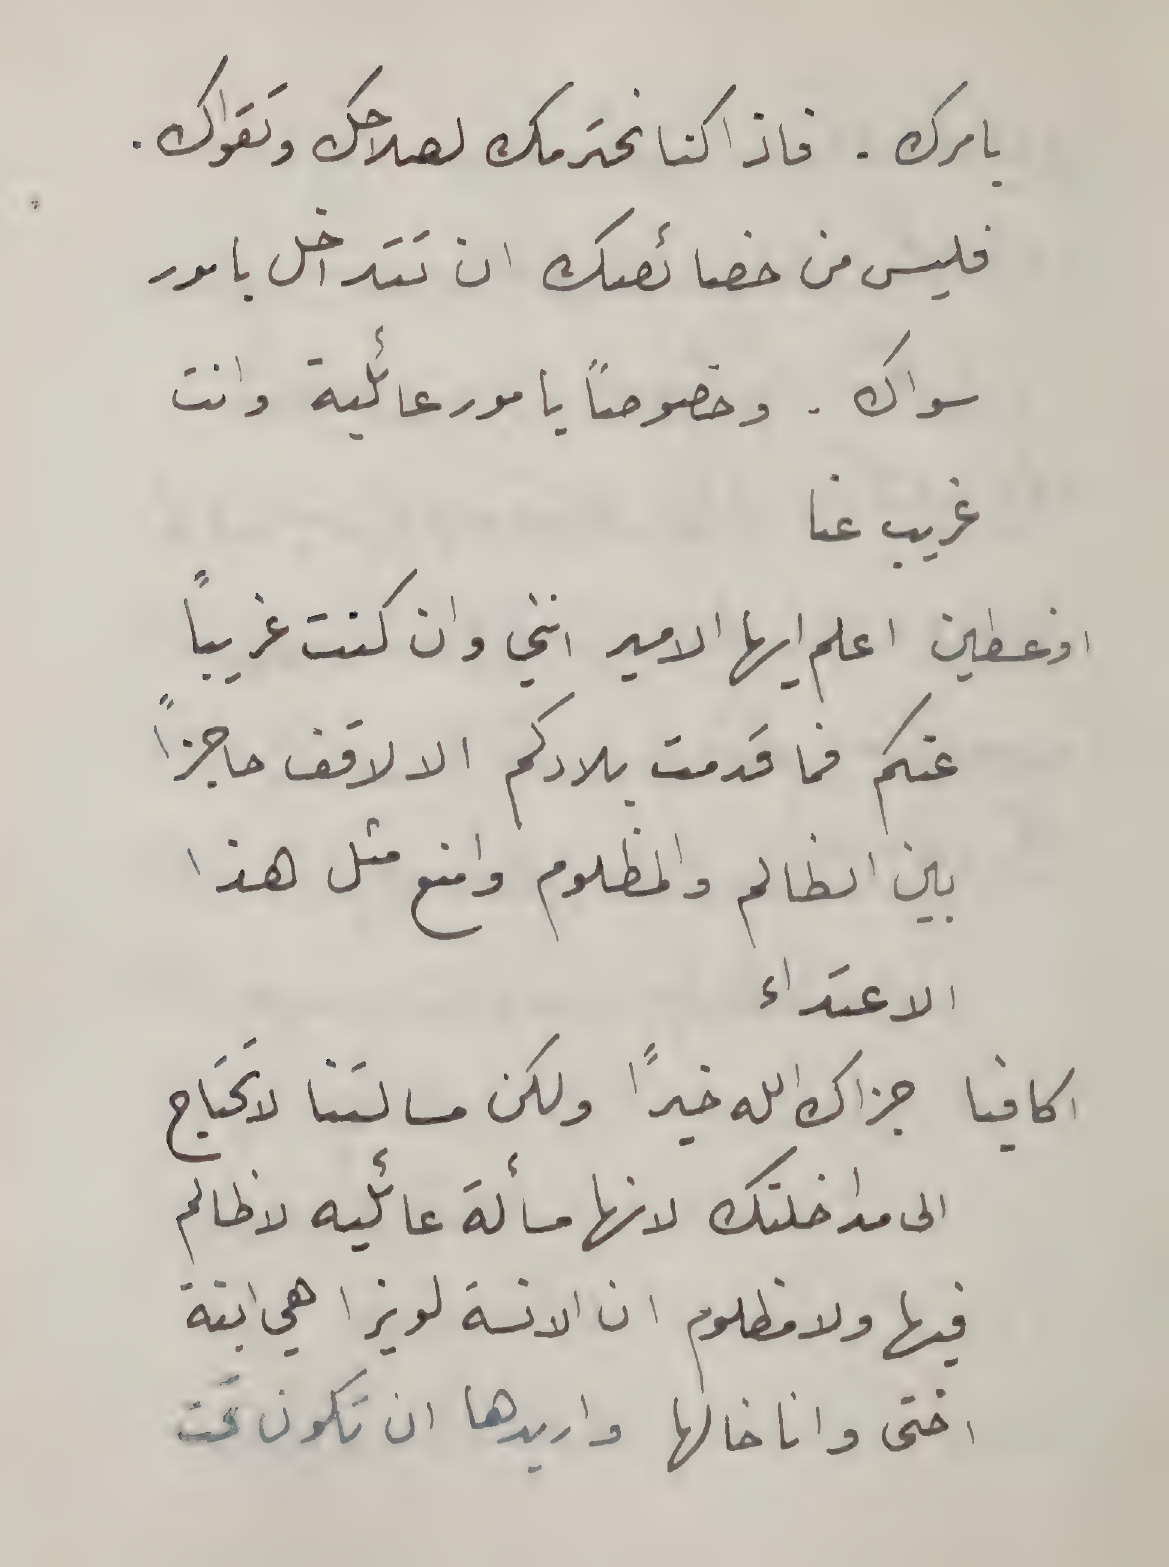 بامرك . فاذا كنا نحترمك لصلاحك وتقواك .
فليس من خصائصك ان تتداخل بامور
سواك . وخصوصاً بامور عائلية وانت
غريب عنا
اوغسطين اعلم ايها الامير انني وان كنت غريباً
عنكم فما قدمت بلادكم الا لاقف حاجزاً
بين الظالم والمظلوم وامنع مثل هذا
الاعتداء
اكافيا جزاك الله خيراً ولكن مسالتنا لا تحتاج
الى مداخلتك لانها مسألة عائليه لا ظالم
فيها ولا مظلوم ان الانسة لويزا هي ابنة
اختى وانا خالها واريدها ان تكون تحت